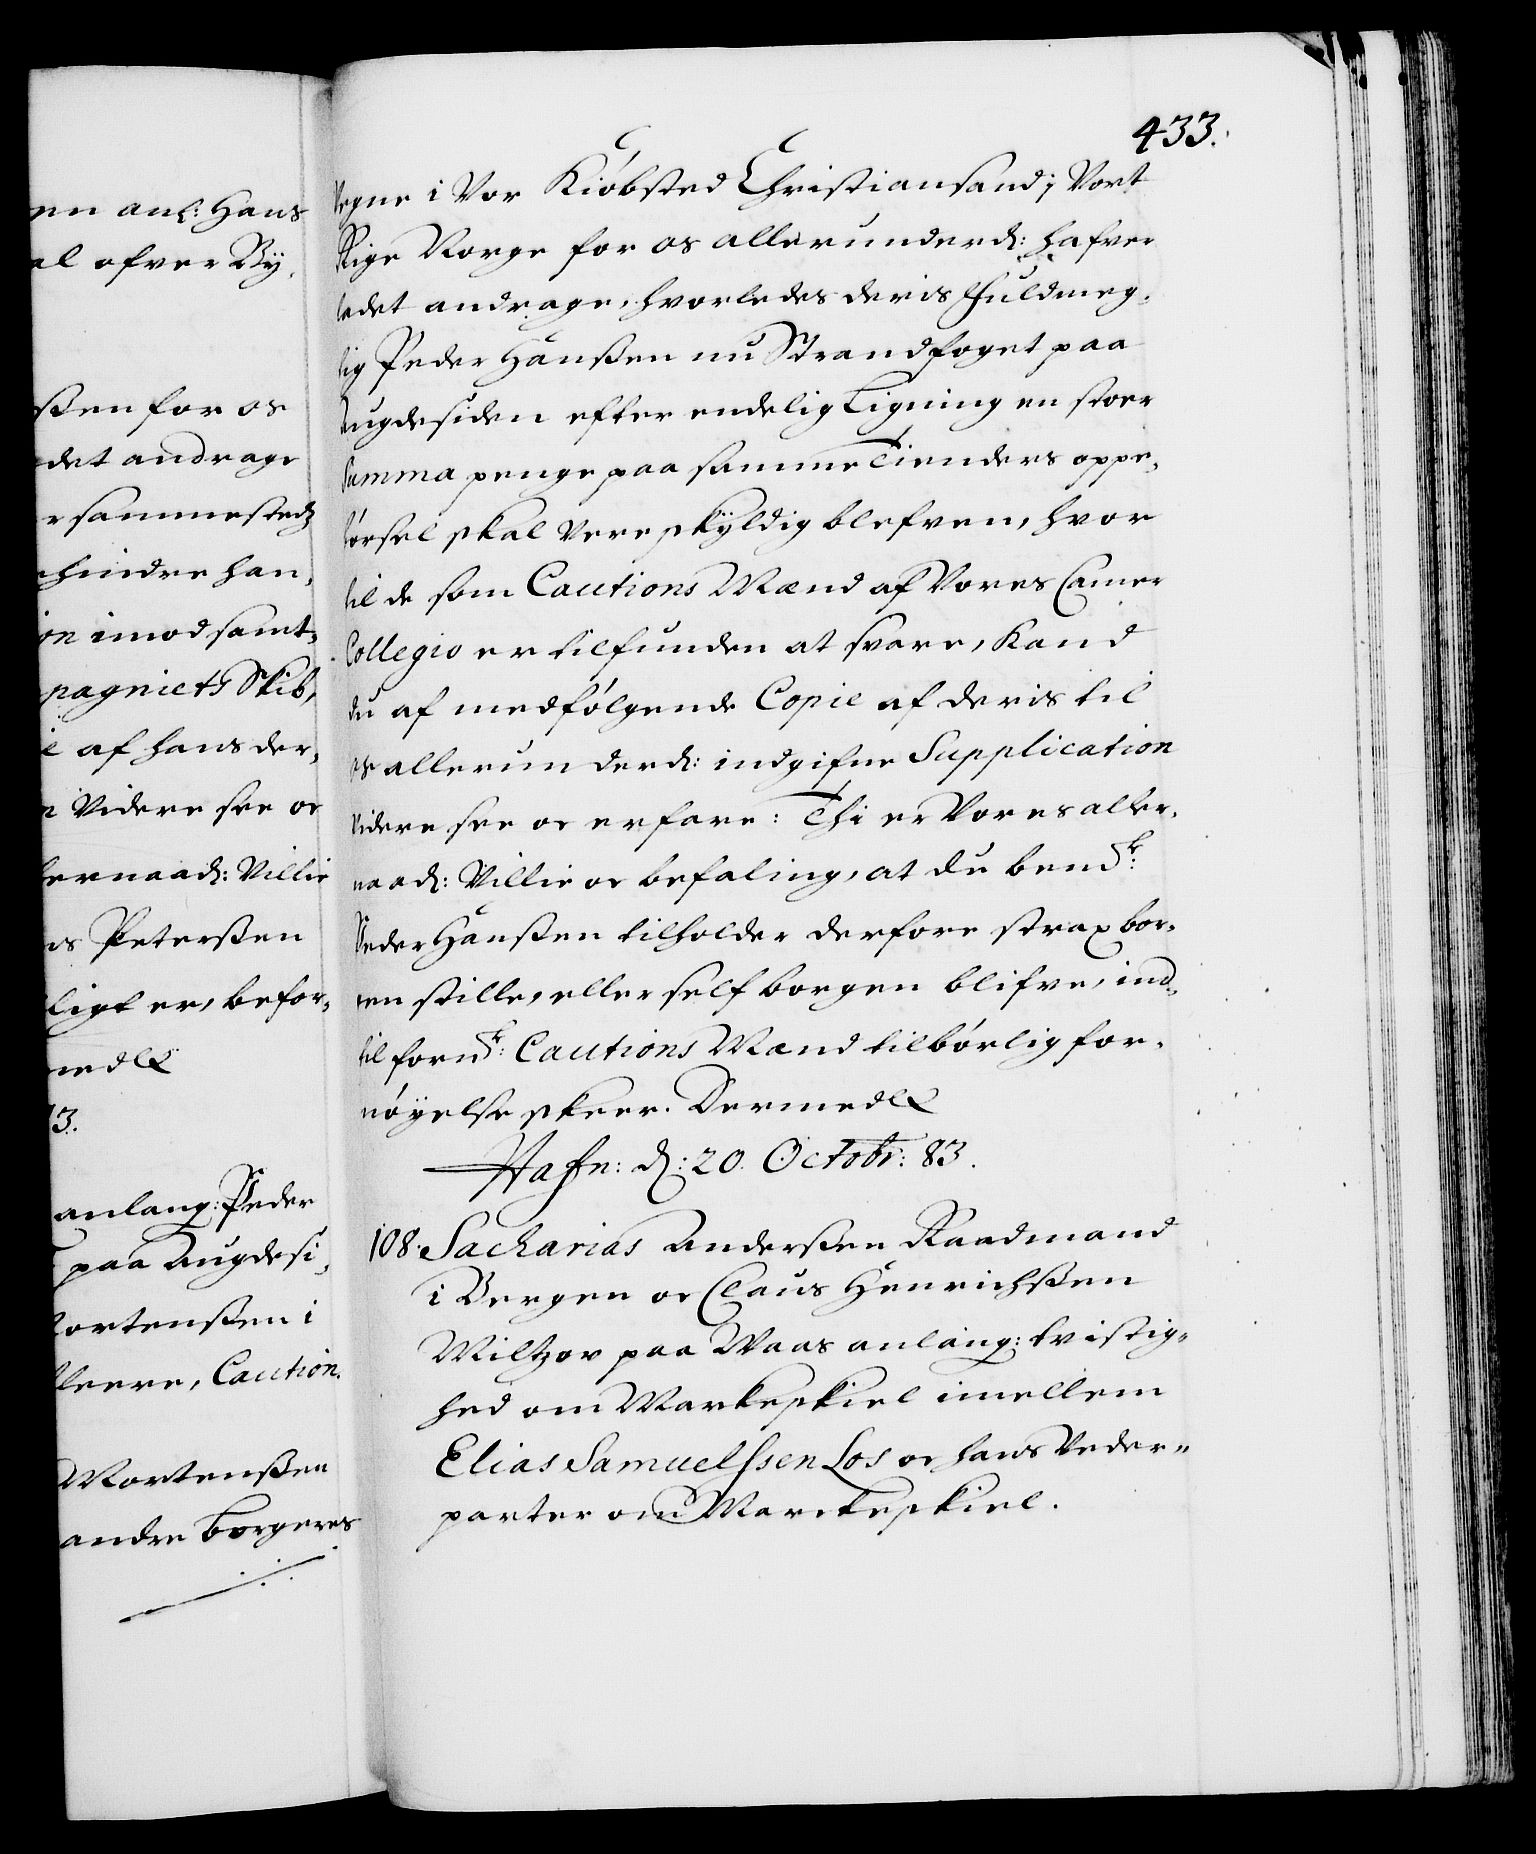 433.
en anl: Hans
al ofver By,
ßen for os
det andrage
r sammestedz
hindre han,
on imod samt,
pagniets Skib,
e af hans der,
Videre see oc
ernaad: Villie
is Peterßen
ligt er, befor,
medlx
3.
anlang: Peder
paa Augdesi,
ortenßen i
leere, Caution.
Mortenßen
andre borgeres
Vegne i Vor Kiöbsted Christiansand i Vort
Rige Norge for os allerunderd: hafver
ladet andrage, hvorledes deris fuldmeg,
tig Peder Hanßen nu Strandfoget paa
Augdesiden efter endelig Ligning en stoer
Summa penge paa samme Tienders oppe,
börsel skal Vere skÿldig blefven, hvor
til de som Cautions Mænd af Vores Camer
Collegio er tilfunden at svare, Kand
du af medfölgende Copie af deris til
os allerunderd: indgifne Supplication
Videre see oc erfare: Thi er Vores aller,
naad: Villie oc befaling, at du bemdte:
Peder Hanßen tilholder derfore strax bor,
gen stille, eller self borgen blifve, ind,
til fornte: Cautions Mænd tilbörlig for,
nöyelse skeer. Dermedlx
Hafn: d: 20. Octobr: 83.
108. Sacharias Anderßen Raadmand
i Bergen oc Claus Henrichßen
Miltzov paa Waas anlang: tvistig,
hed om Markeskiel imellem
Elias Samuelssen Los oc hans Veder,
parter om Marckeskiel.